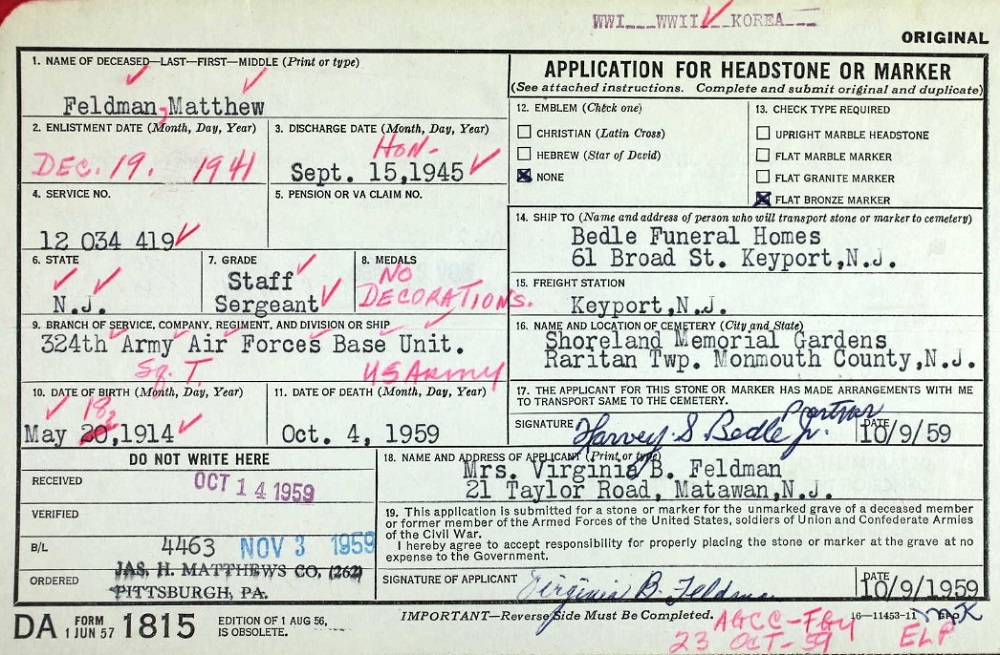 WWI___WWII___KOREA___
ORIGINAL
1. NAME OF DECEASED—LAST—FIRST—MIDDLE (Print or type)
Feldman, Matthew
2. ENLISTMENT DATE (Month, Day, Year)
DEC. 19. 1941
3. DISCHARGE DATE (Month, Day, Year)
HON-
Sept. 15,1945
4. SERVICE NO.
12 034 419
5. PENSION OR VA CLAIM NO.
6. STATE
N.J.
7. GRADE
Staff
Sergeant
8. MEDALS
NO
DECORATIONS.
9. BRANCH OF SERVICE, COMPANY, REGIMENT, AND DIVISION OR SHIP
324th Army Air Forces Base Unit.
Sq. T. US Army
10. DATE OF BIRTH (Month, Day, Year)
18,
May 20,1914
11. DATE OF DEATH (Month, Day, Year)
Oct. 4, 1959
DO NOT WRITE HERE
RECEIVED
OCT 14 1959
VERIFIED
B/L
4463 NOV 3 1959
ORDERED
JAS. H. MATTHEWS CO. (262)
PITTSBURGH, PA.
APPLICATION FOR HEADSTONE OR MARKER
(See attached instructions. Complete and submit original and duplicate)
12. EMBLEM (Check one)
CHRISTIAN (Latin Cross)
HEBREW (Star of David)
NONE
13. CHECK TYPE REQUIRED
UPRIGHT MARBLE HEADSTONE
FLAT MARBLE MARKER
FLAT GRANITE MARKER
FLAT BRONZE MARKER
14. SHIP TO (Name and address of person who will transport stone or marker to cemetery)
Bedle Funeral Homes
61 Broad St. Keyport,N.J.
15. FREIGHT STATION
Keyport,N.J.
16. NAME AND LOCATION OF CEMETERY (City and State)
Shoreland Memorial Gardens
Raritan Twp. Monmouth County,N.J.
17. THE APPLICANT FOR THIS STONE OR MARKER HAS MADE ARRANGEMENTS WITH ME
TO TRANSPORT SAME TO THE CEMETERY.
SIGNATURE Harvey S. Bedle Jr. Partner
DATE
10/9/59
18. NAME AND ADDRESS OF APPLICANT (Print or type)
Mrs. Virginia B. Feldman
21 Taylor Road, Matawan,N.J.
19. This application is submitted for a stone or marker for the unmarked grave of a deceased member
or former member of the Armed Forces of the United States, soldiers of Union and Confederate Armies
of the Civil War.
I hereby agree to accept responsibility for properly placing the stone or marker at the grave at no
expense to the Government.
SIGNATURE OF APPLICANT Virginia B. Feldman
DATE
10/9/1959
DA FORM 1 JUN 57 1815
EDITION OF 1 AUG 56,
IS OBSOLETE.
IMPORTANT—Reverse Side Must Be Completed.
16—11453-11
AGCC-
23 OCT-59
ELP